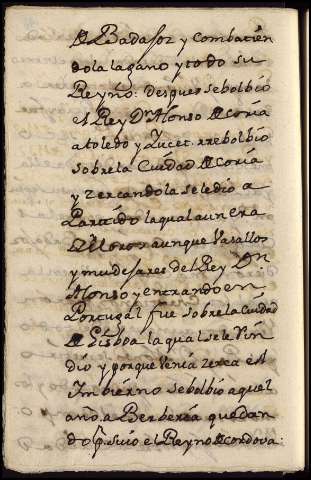 de Badajoz y combatien
dola la gano y todo su
Reyno: despues se bolbio
el Rey Dn Alonso de Coria
a toledo y Yucef rrebolbio
sobre la Ciudad de Coria
y zercandola se le dio a
Partido la qual aun era
de Moros aunque Vasallos
y mudejares del Rey Dn
Alonso y entrando en
Portugal fue sobre la Ciudad
de Lisboa la qual se le Rin
dio y porque Venia zerca el
Imbierno se bolbio aquel
año a Berberia quedan
do por suio el Reyno de Cordova: